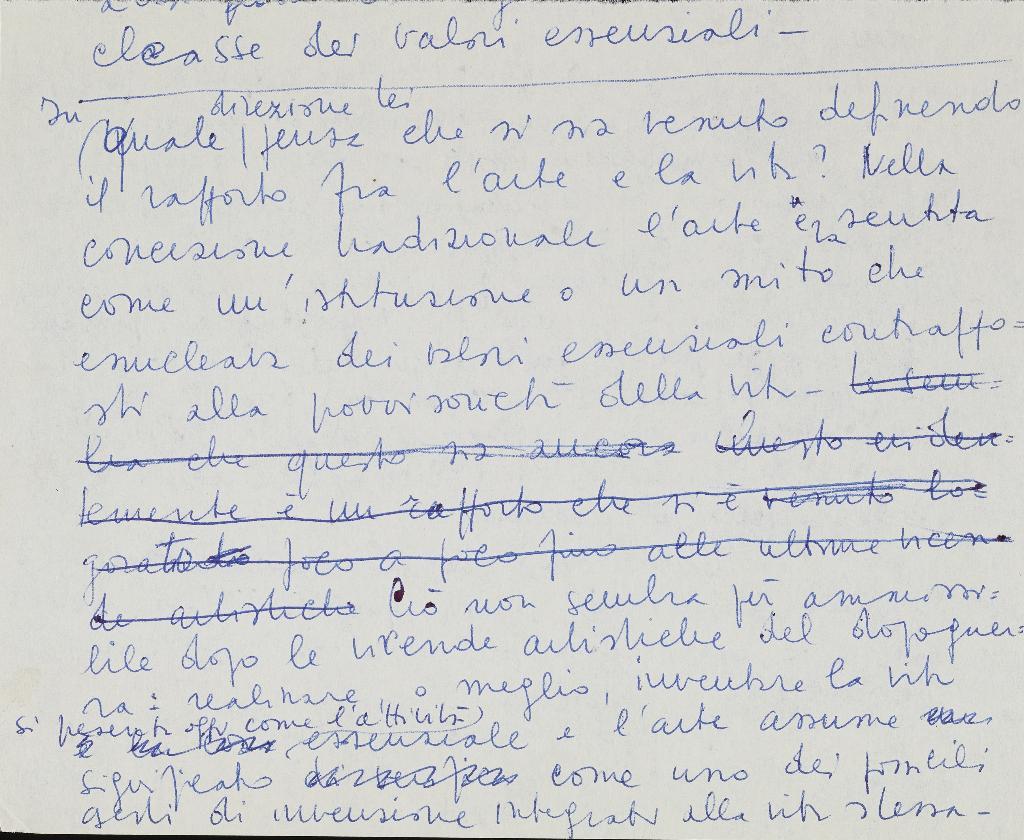 classe dei valori essenziali —
In direzione lei
quale pensa che si sia venuto definendo
il rapporto fra l'arte e la vita? Nella
concezione tradizionale l'arte era sentita
come un'istituzione o un mito che
enucleava dei valori essenziali contrappo=
sti alla provvisorietà della vita — Le sem=
bra che questo sia ancora Questo eviden=
temente è un rapporto che si è venuto lo=
gorando poco a poco fino alle ultime vicen=
de artistiche Ciò non sembra più ammissi=
bile dopo le vicende artistiche del dopoguer=
ra: realizzare, o meglio, inventare la vita
si presenta oggi come l'attività
essenziale e l'arte assume
significato come uno dei possibili
gesti di invenzione integrati alla vita stessa —